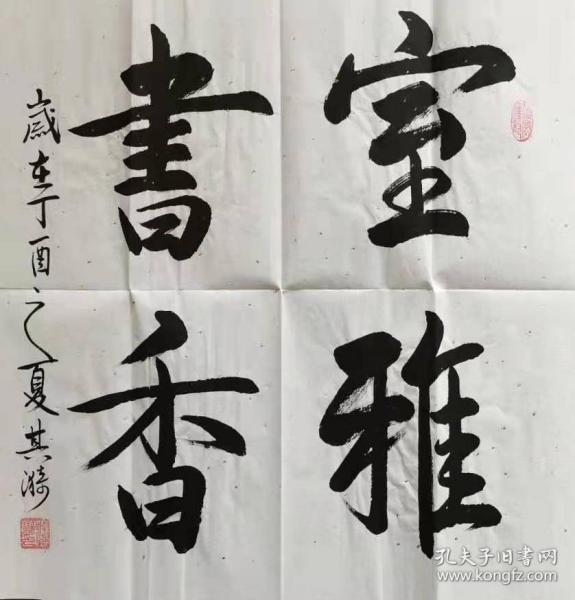 室雅
書香
歲在丁酉之夏其漪
孔夫子旧书网
www.kongfz.com